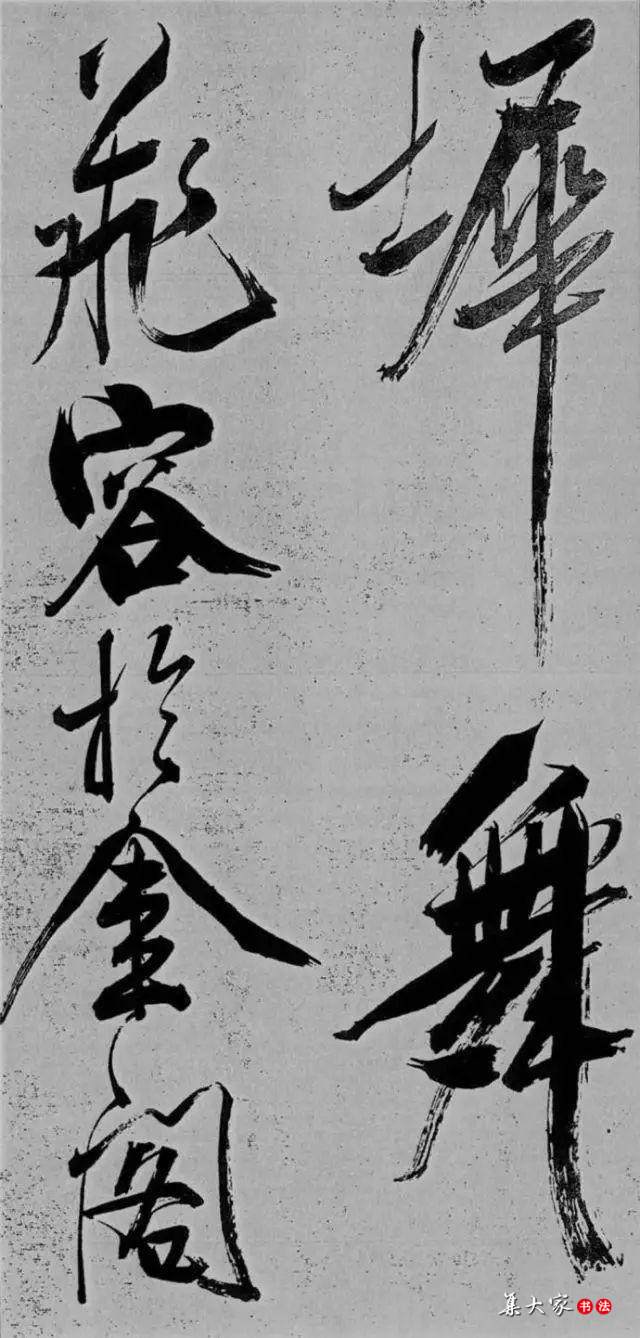 墀舞
飛容於金閣
集大家书法